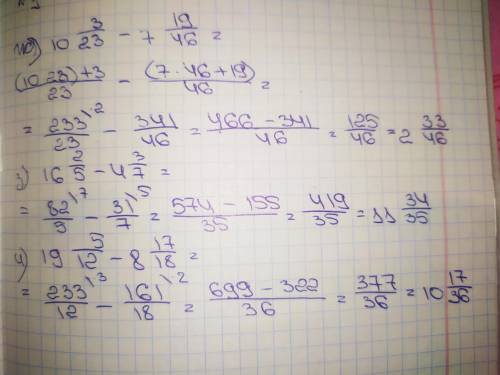 10 3/23 - 7 19/46 =
(10·23)+3/23 - (7·46+19)/46 =
= 233\2/23 - 341/46 = 466-341/46 = 125/46 = 2 33/46
3) 16 2/5 - 4 3/7 =
= 82\7/5 - 31\5/7 = 574-155/35 = 419/35 = 11 34/35
4) 19 5/12 - 8 17/18 =
= 233\3/12 - 161\2/18 = 699-322/36 = 377/36 = 10 17/36